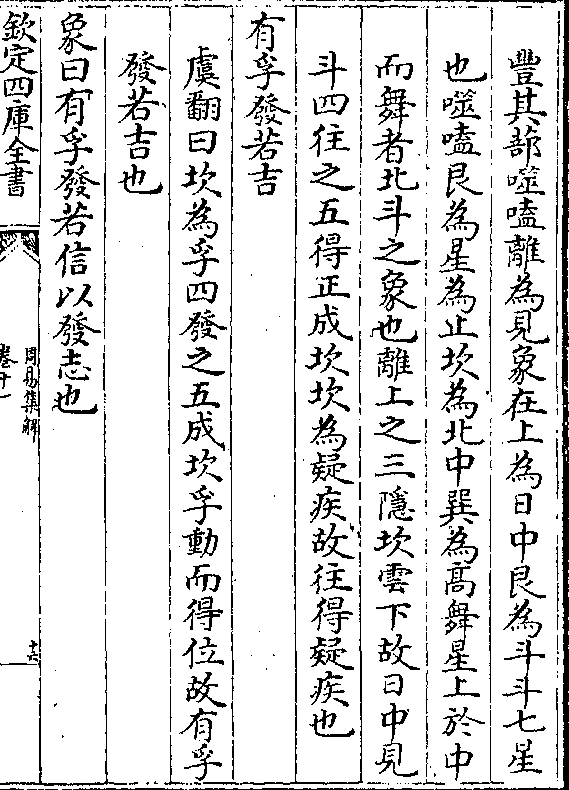 豐其蔀噬嗑離為見象在上為日中艮為斗斗七星
也噬嗑艮為星為止坎為北中巽為高舞星上於中
而舞者北斗之象也離上之三隱坎雲下故日中見
斗四往之五得正成坎坎為疑疾故往得疑疾也
有孚發若吉
虞翻曰坎為孚四發之五成坎孚動而得位故有孚
發若吉也
象曰有孚發若信以發志也
欽定四庫全書
周易集解
卷十一
十六